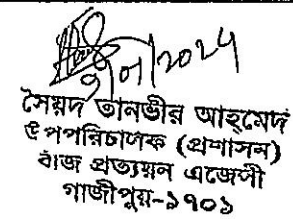 সৈয়দ তানভীর আহ্মেদ
উপপরিচালক (প্রশাসন)
বীজ প্রত্যয়ন এজেন্সী
গাজীপুর-১৭০১